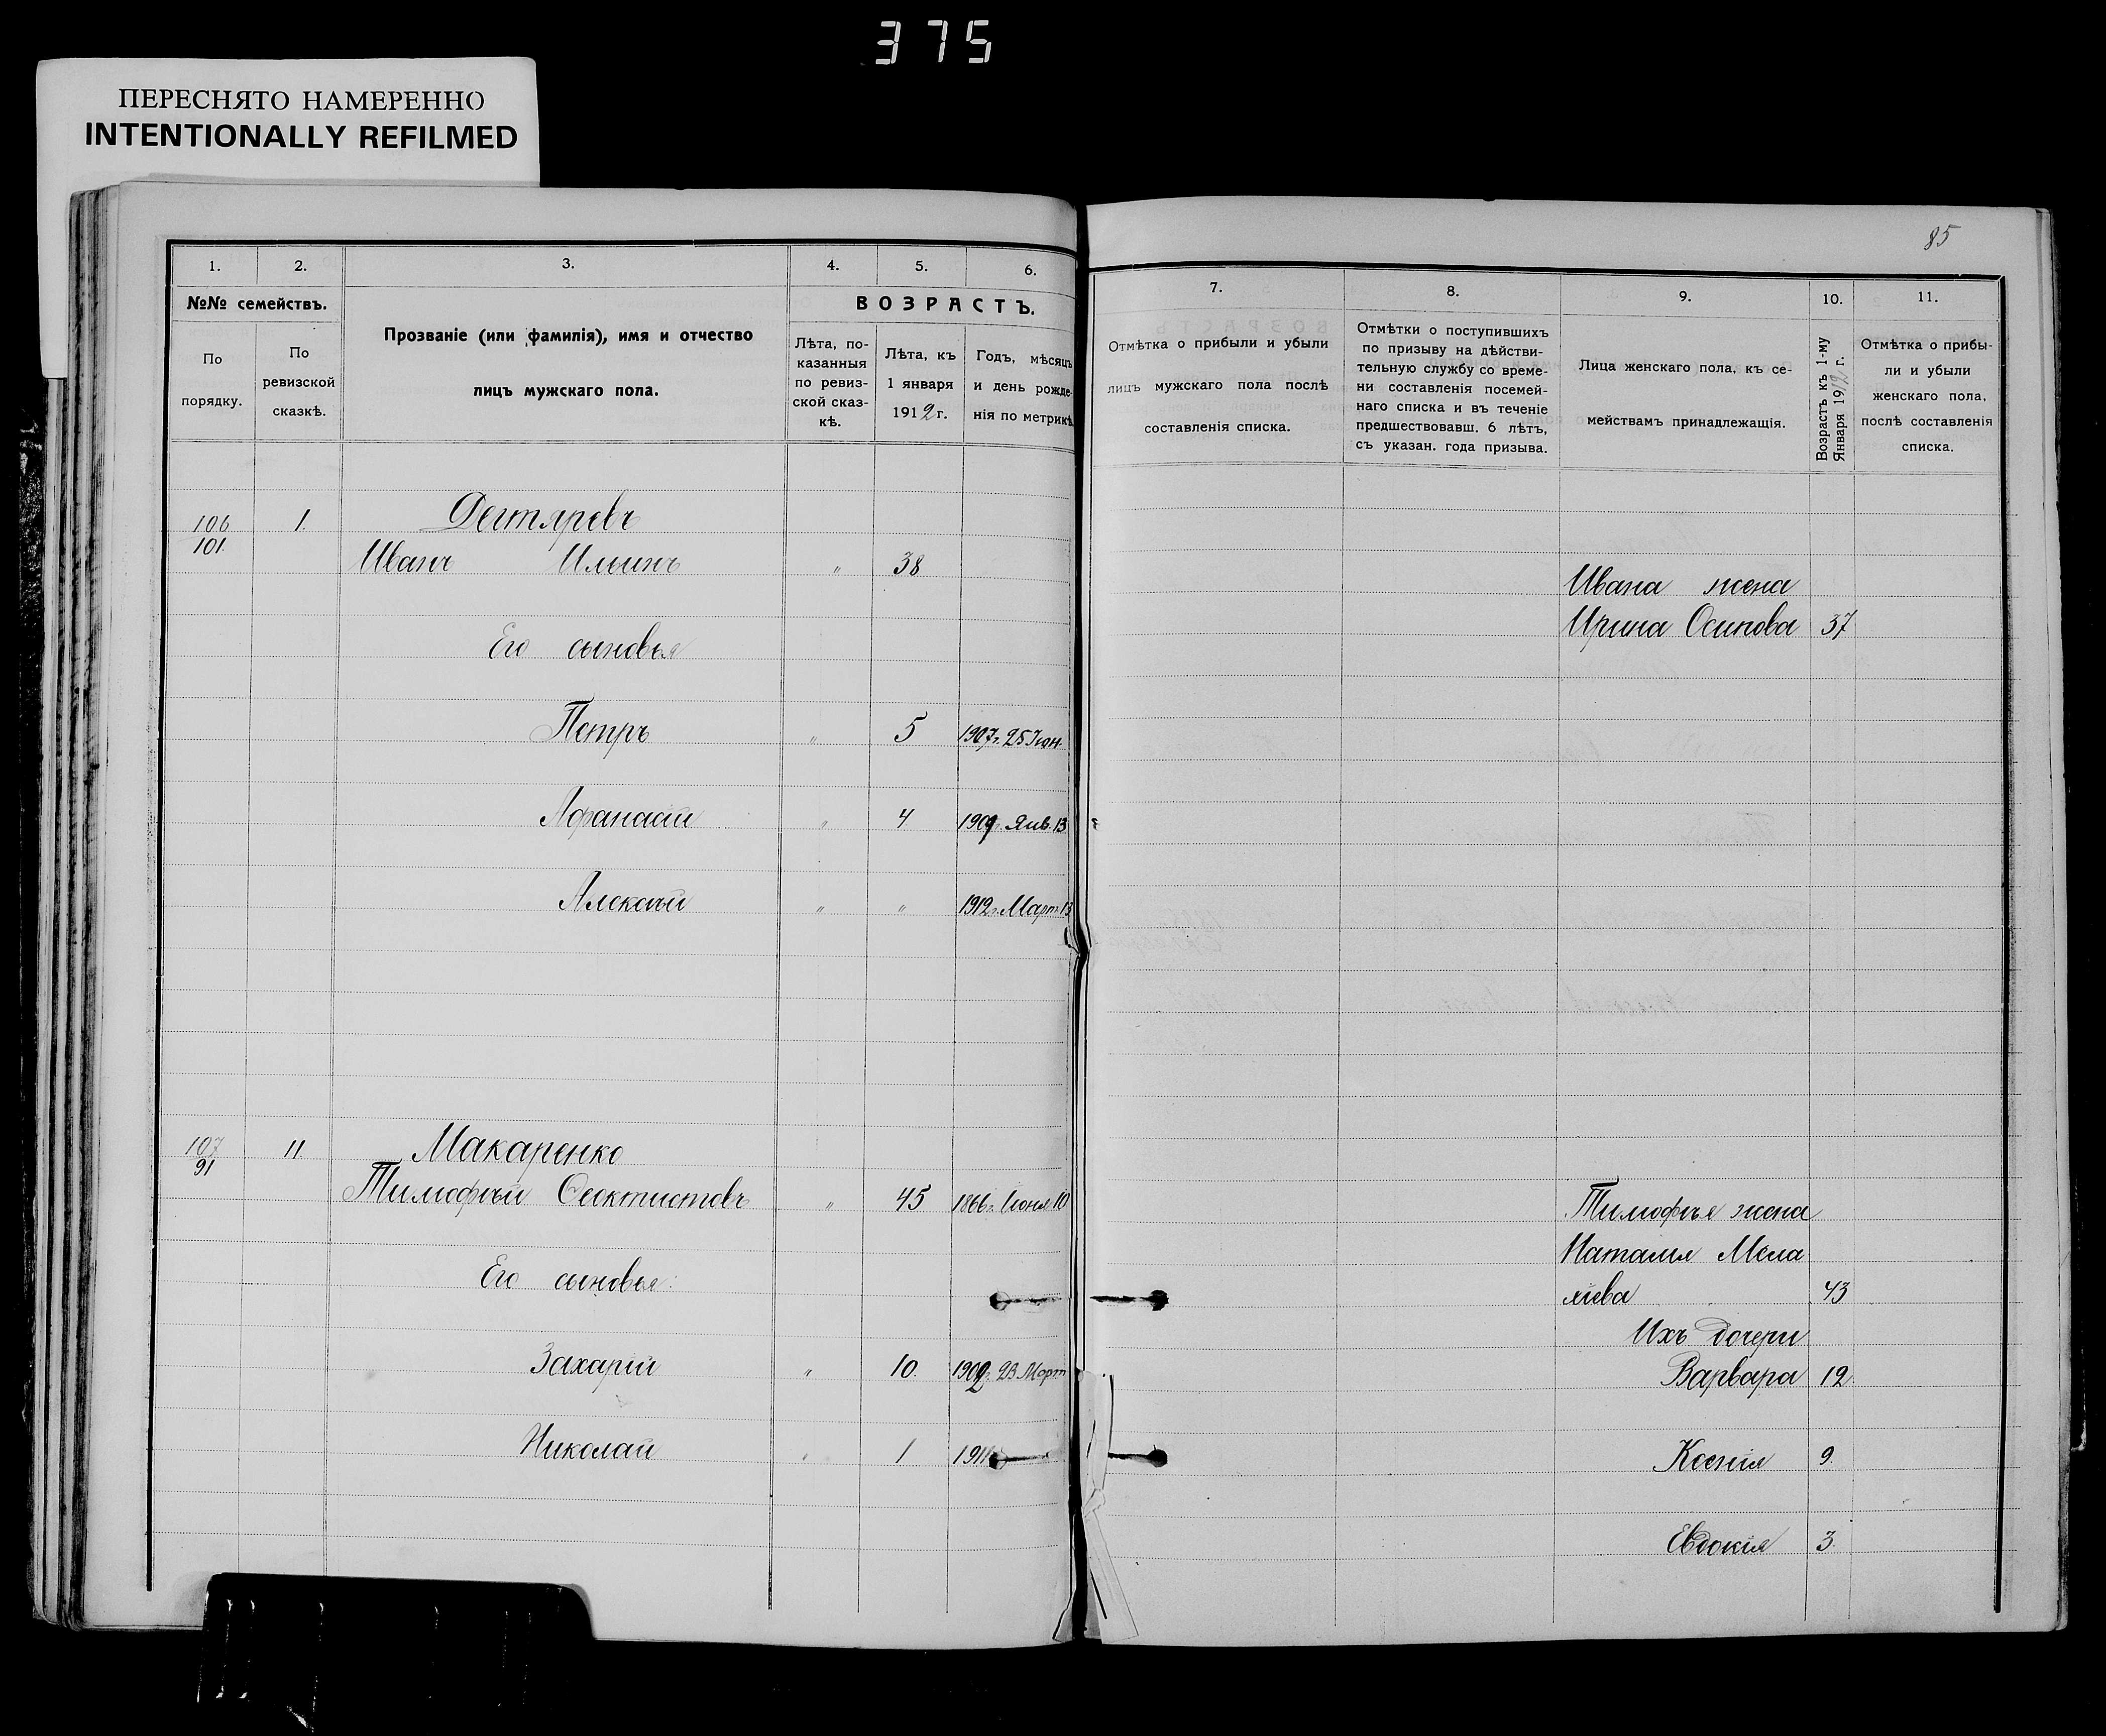 375
ПЕРЕСНЯТО НАМЕРЕННО
INTENTIONALLY REFILMED
85
1. 2. 3. 4. 5. 6.
№№ семействъ.
По порядку.
По ревизской сказкѣ.
Прозваніе (или фамилія), имя и отчество
лицъ мужскаго пола.
ВОЗРАСТЪ.
Лѣта, по-
казанныя
по ревиз-
ской сказ-
кѣ.
Лѣта, къ
1 января
1912 г.
Годъ, мѣсяцъ
и день рожде-
нія по метрикѣ
106 1. Дегтяревъ
101.
Иванъ Ильинъ " 38
Его сыновья
Петръ " 5 1907г. 25 Іюн.
Афанасій " 4 1909г. Янв. 13
Алексѣй " " 1912г. Март. 13
107 11. Макаренко
91
Тимофѣй Феоктистовъ " 45 1866г. Іюня 10
Его сыновья:
Захарій " 10. 1902г. 23 Март
Николай " 1 1911
7. 8. 9. 10. 11.
Отмѣтка о прибыли и убыли
лицъ мужскаго пола послѣ
составленія списка.
Отмѣтки о поступившихъ
по призыву на дѣйстви-
тельную службу со време-
ни составленія посемей-
наго списка и въ теченіе
предшествовавш. 6 лѣтъ,
съ указан. года призыва.
Лица женскаго пола, къ се-
мействамъ принадлежащія.
Возрастъ къ 1-му
Января 1912 г.
Отмѣтка о прибы-
ли и убыли
женскаго пола,
послѣ составленія
списка.
Ивана жена
Ирина Осипова 37
Тимофѣя жена
Наталія Мала
хіева 43
Ихъ дочери
Варвара 12.
Ксенія 9.
Евдокія 3.